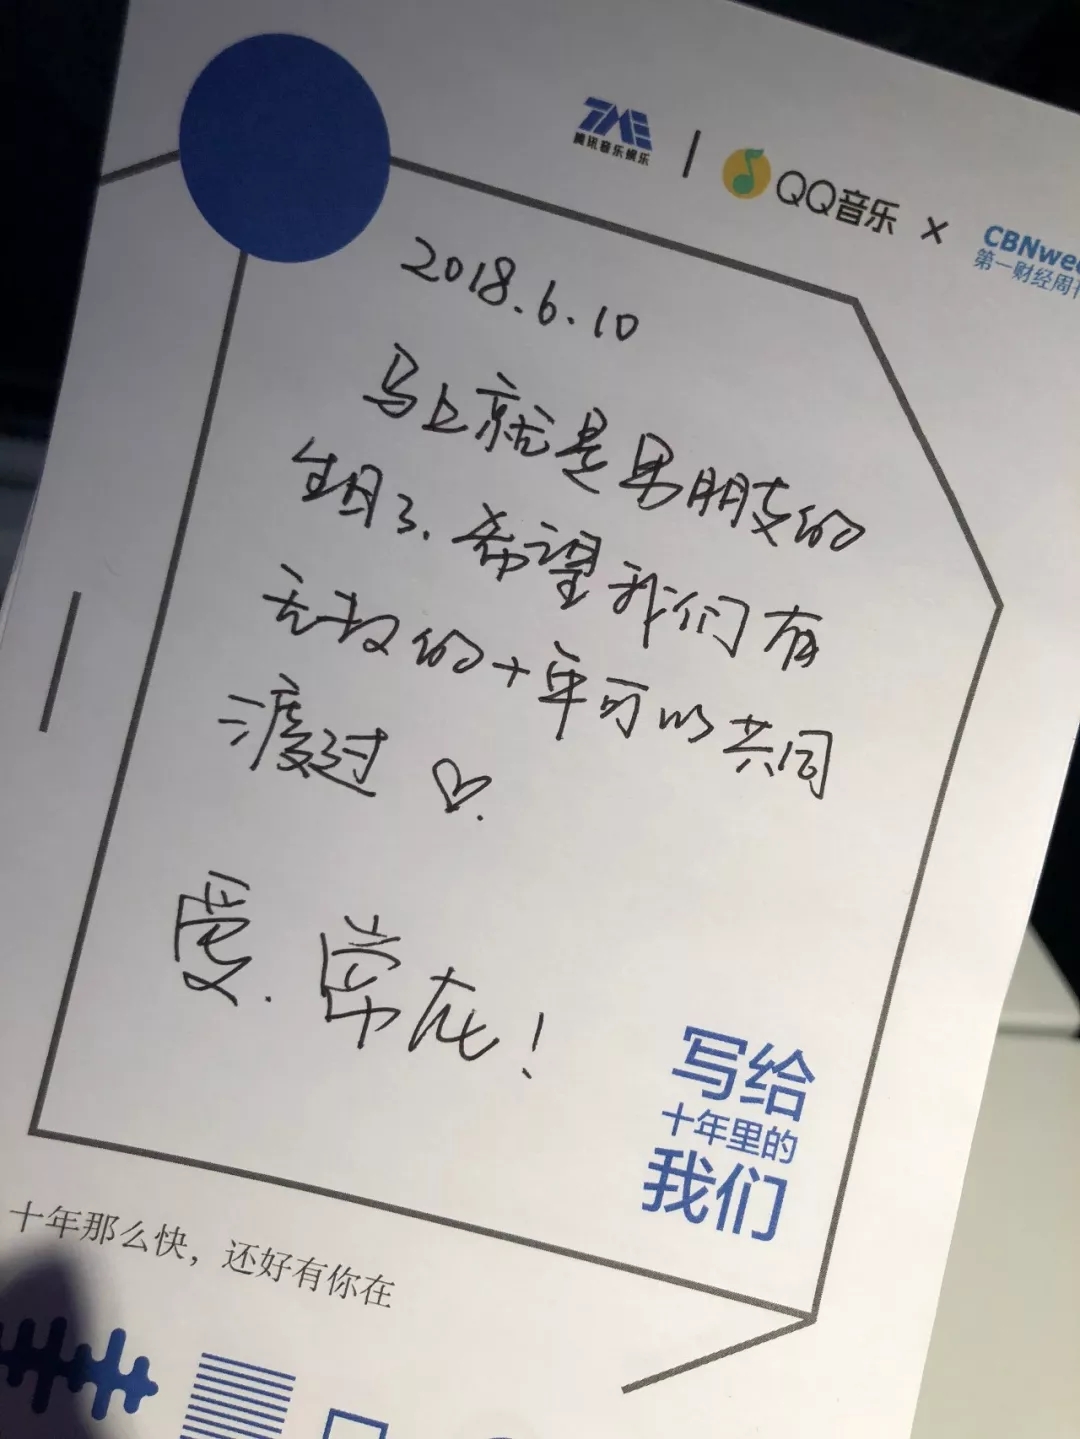 TME
腾讯音乐娱乐
QQ音乐 ×
CBNwee
第一财经周刊
2018.6.10
马上就是男朋友的
生日了.希望我们有
无敌的十年可以共同
渡过♡.
爱.常在!
写给
十年里的
我们
十年那么快，还好有你在